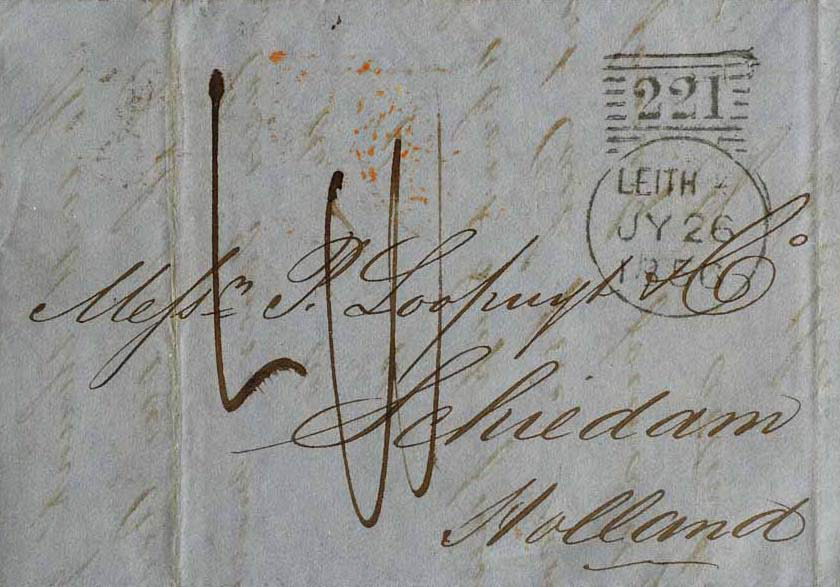 221
LEITH
JY 26
Messrs P. Loopuyt & Co
Schiedam
Holland